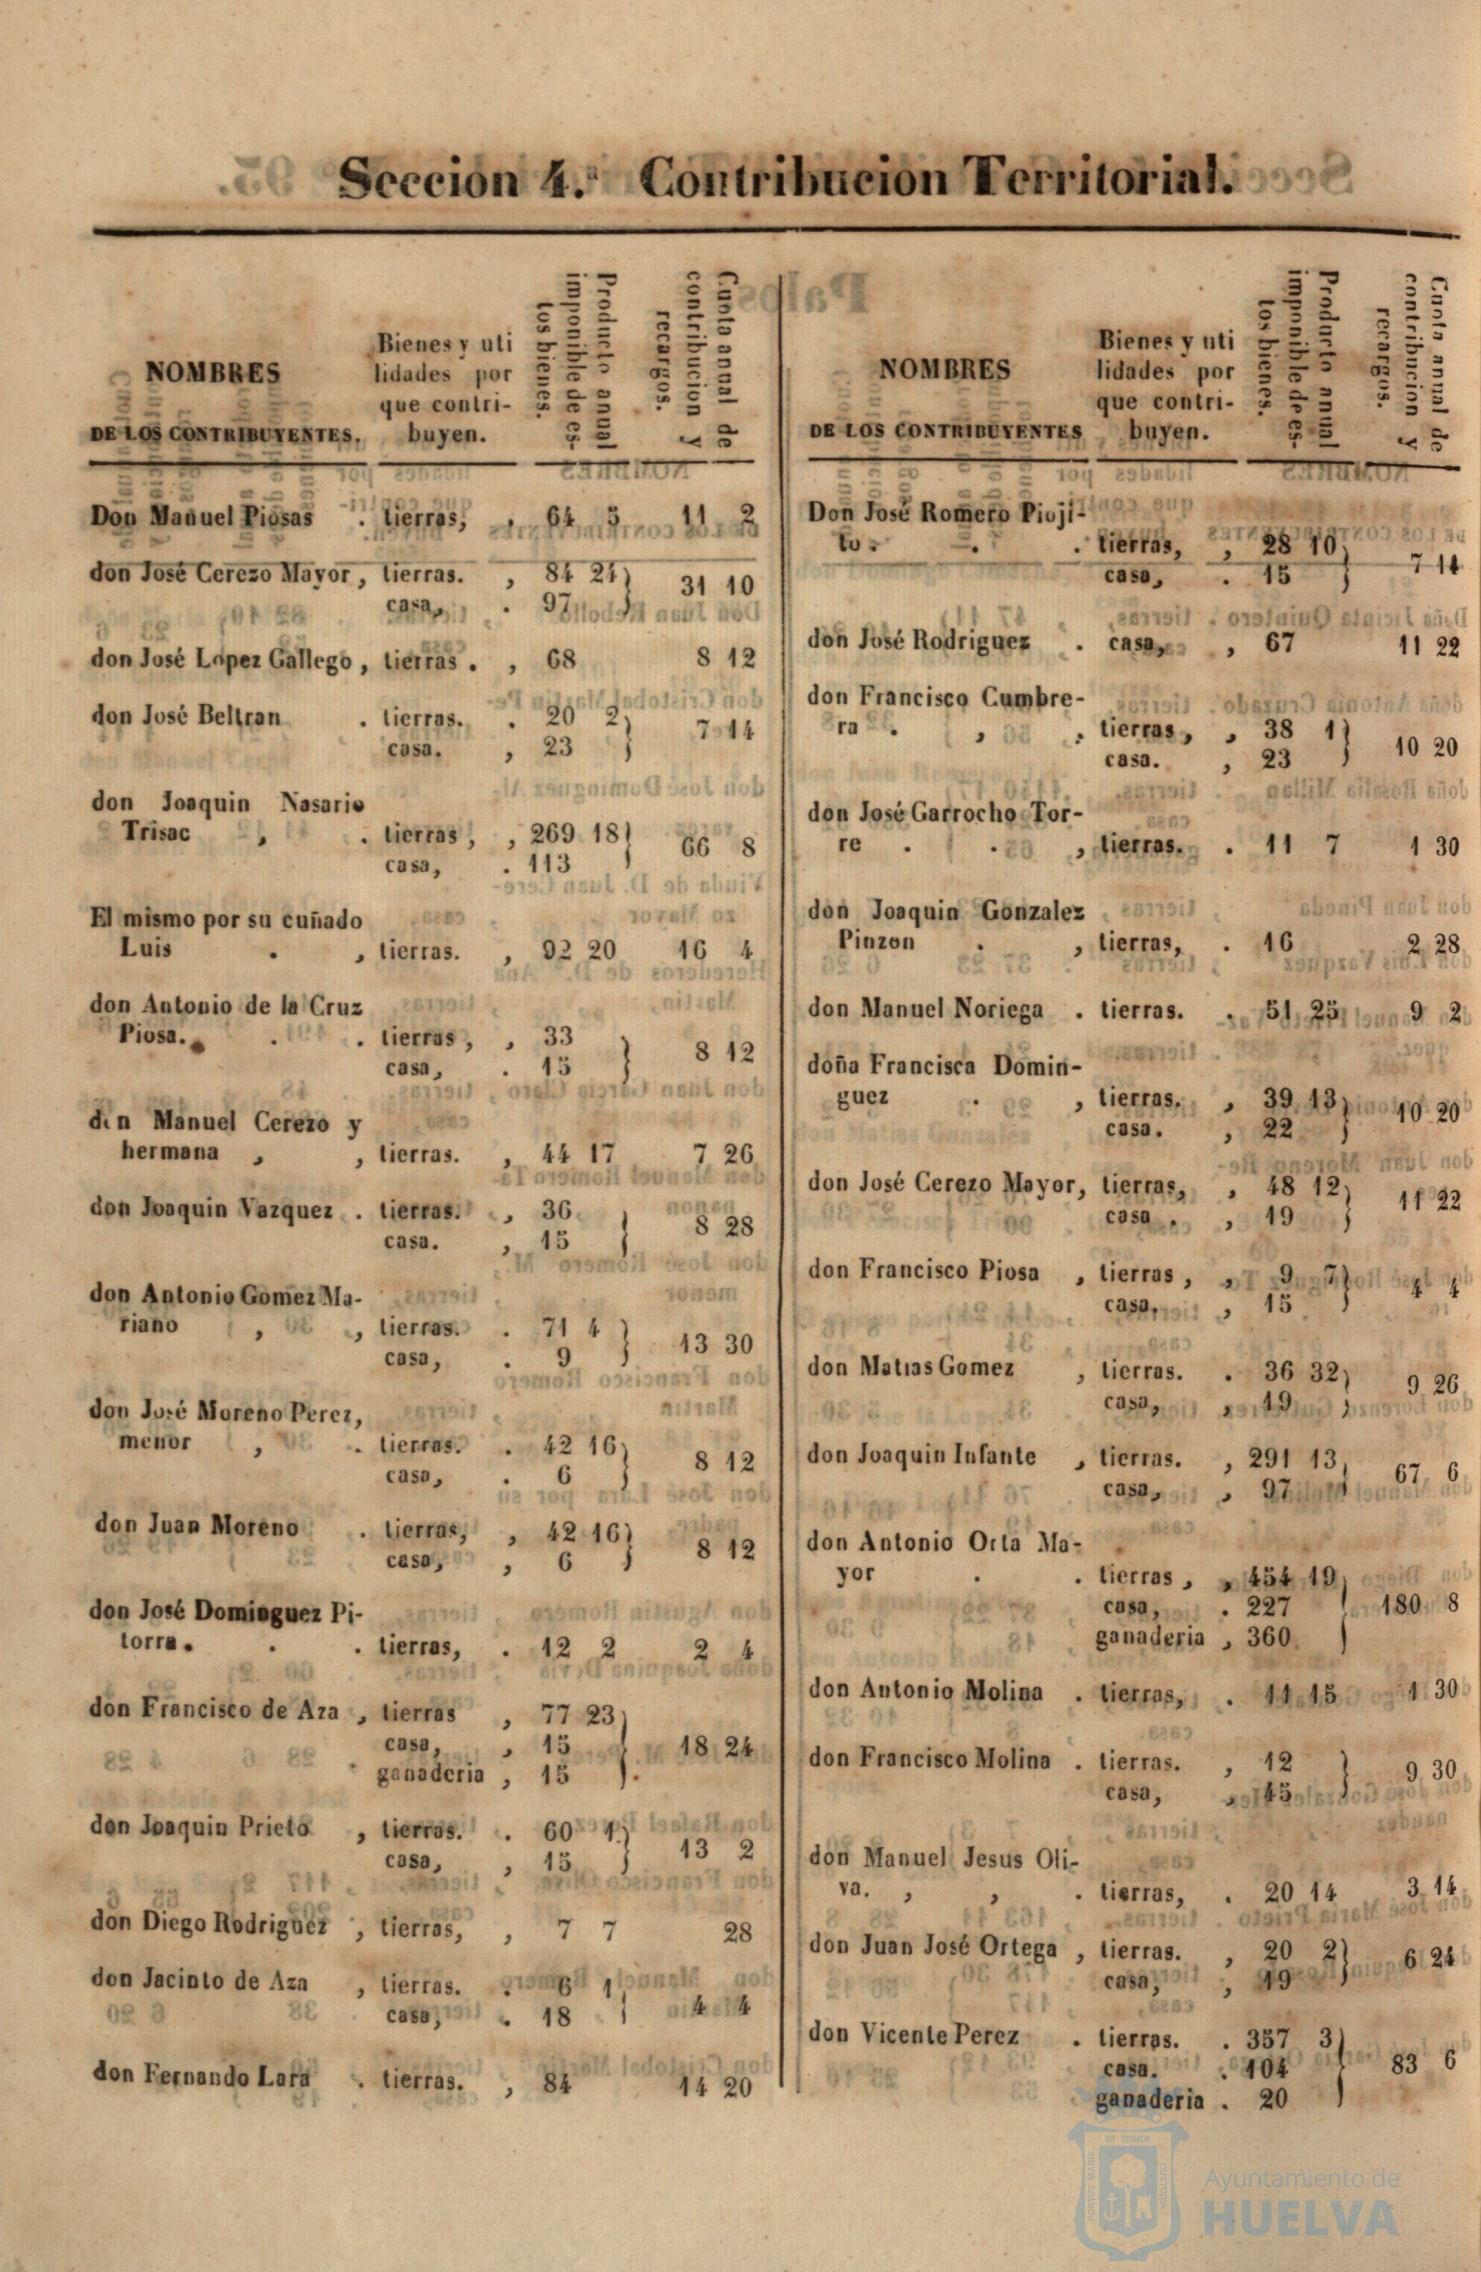 Seccion 4.ª Contribucion Territorial.
NOMBRES
DE LOS CONTRIBUYENTES.
Bienes y uti
lidades por
que contri-
buyen.
Producto anual
imponible de es-
tos bienes.
Cuota anual de
contribucion y
recargos.
Don Manuel Piosas . tierras, . 64 5 11 2
don José Cerezo Mayor, tierras. , 84 24 31 10
casa, . 97
don José Lopez Gallego, tierras . , 68 8 12
don José Beltran . tierras. . 20 2 7 14
casa. , 23
don Joaquin Nasario
Trisac , . tierras, , 269 18 66 8
casa, . 113
El mismo por su cuñado
Luis . , tierras. , 92 20 16 4
don Antonio de la Cruz
Piosa. . . tierras, , 33 8 12
casa, . 15
don Manuel Cerezo y
hermana , , tierras. , 44 17 7 26
don Joaquin Vazquez . tierras. , 36 8 28
casa. , 15
don Antonio Gomez Ma-
riano , , tierras. . 71 4 13 30
casa, . 9
don José Moreno Perez,
menor , . tierras. . 42 16 8 12
casa, . 6
don Juan Moreno . tierras, , 42 16 8 12
casa, , 6
don José Dominguez Pi-
torra. . . tierras, . 12 2 2 4
don Francisco de Aza , tierras , 77 23 18 24
casa, , 15
ganaderia , 15
don Joaquin Prieto , tierras. . 60 1 13 2
casa, , 15
don Diego Rodriguez , tierras, , 7 7 28
don Jacinto de Aza , tierras. . 6 1 4 4
casa, . 18
don Fernando Lara . tierras. , 84 14 20
NOMBRES
DE LOS CONTRIBUYENTES
Bienes y uti
lidades por
que contri-
buyen.
Producto anual
imponible de es-
tos bienes.
Cuota anual de
contribucion y
recargos.
Don José Romero Pioji-
to . . . tierras, , 28 10 7 14
casa, . 15
don José Rodriguez . casa, , 67 11 22
don Francisco Cumbre-
ra . , . tierras, , 38 1 10 20
casa. , 23
don José Garrocho Tor-
re . . , tierras. . 11 7 1 30
don Joaquin Gonzalez
Pinzon . , tierras, . 16 2 28
don Manuel Noriega . tierras. . 51 25 9 2
doña Francisca Domin-
guez . , tierras. , 39 13 10 20
casa. , 22
don José Cerezo Mayor, tierras, , 48 12 11 22
casa . , 19
don Francisco Piosa , tierras, , 9 7 4 4
casa. , 15
don Matias Gomez , tierras. . 36 32 9 26
casa, , 19
don Joaquin Infante , tierras. , 291 13 67 6
casa, , 97
don Antonio Orta Ma-
yor . . tierras, , 454 19
casa, . 227 180 8
ganaderia , 360
don Antonio Molina . tierras, . 11 15 1 30
don Francisco Molina . tierras. , 12 9 30
casa, , 45
don Manuel Jesus Oli-
va. , , . tierras, . 20 14 3 14
don Juan José Ortega , tierras. , 20 2 6 24
casa, , 19
don Vicente Perez . tierras. . 357 3
casa. . 104 83 6
ganaderia . 20
Ayuntamiento de
HUELVA